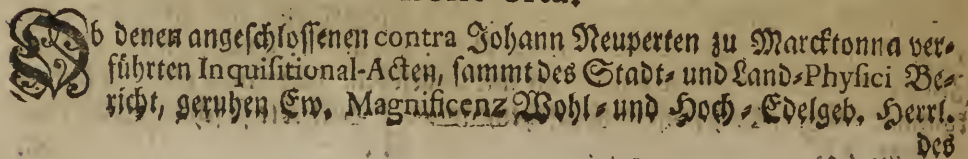 Ob denen angeschlossenen contra Johann Neuperten zu Marcktonna ver-
führten Inquisitional-Acten, sammt des Stadt- und Land-Physici Be-
richt, geruhen Ew. Magnificenz Wohl- und Hoch-Edelgeb. Herrl.
des